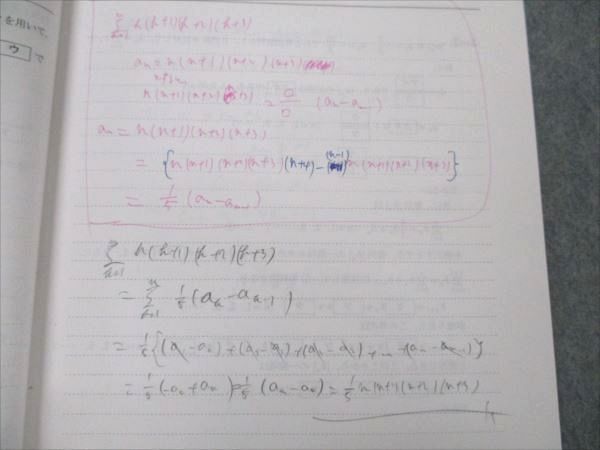 を用いて,
ウ で
n
Σ k(k+1)(k+2)(k+3)
k=1
an = n(n+1)(n+2)(n+3)
n(n+1)(n+2)(n+3) = □/□ (an - an-1)
an = n(n+1)(n+2)(n+3)
= {n(n+1)(n+2)(n+3)(n+4) - (n-1)n(n+1)(n+2)(n+3)}
= 1/5 (an - an-1)
n
Σ k(k+1)(k+2)(k+3)
k=1
n
= Σ 1/5 (ak - ak-1)
k=1
= 1/5 {(a1 - a0) + (a2 - a1) + (a3 - a2) + … + (an - an-1)}
= 1/5 (-a0 + an) = 1/5 (an - a0) = 1/5 n(n+1)(n+2)(n+3)